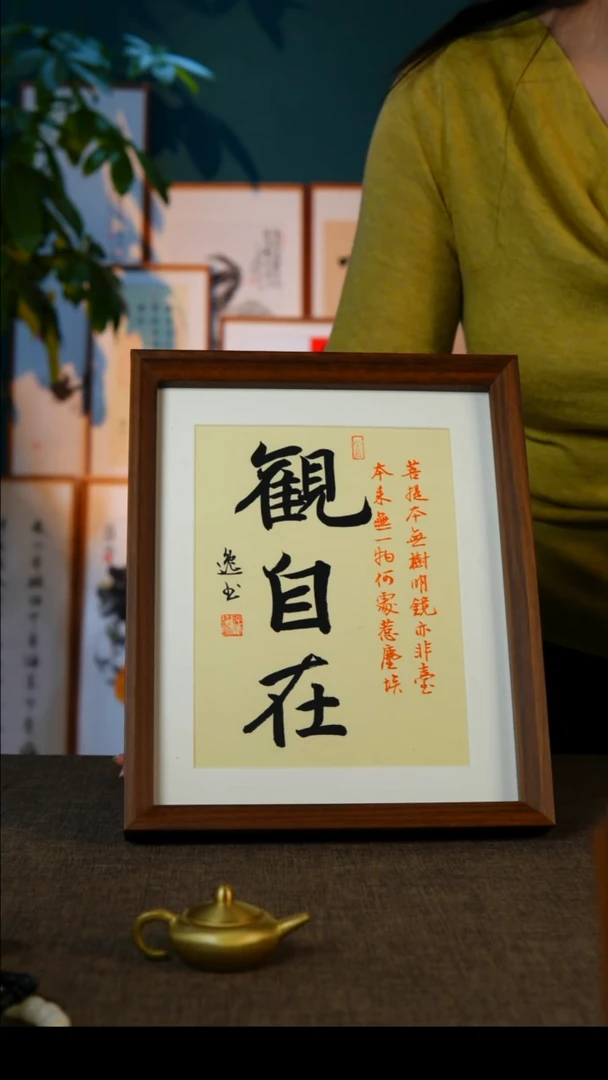 菩提本無樹明鏡亦非臺
本来無一物何處惹塵埃
観自在
逸书